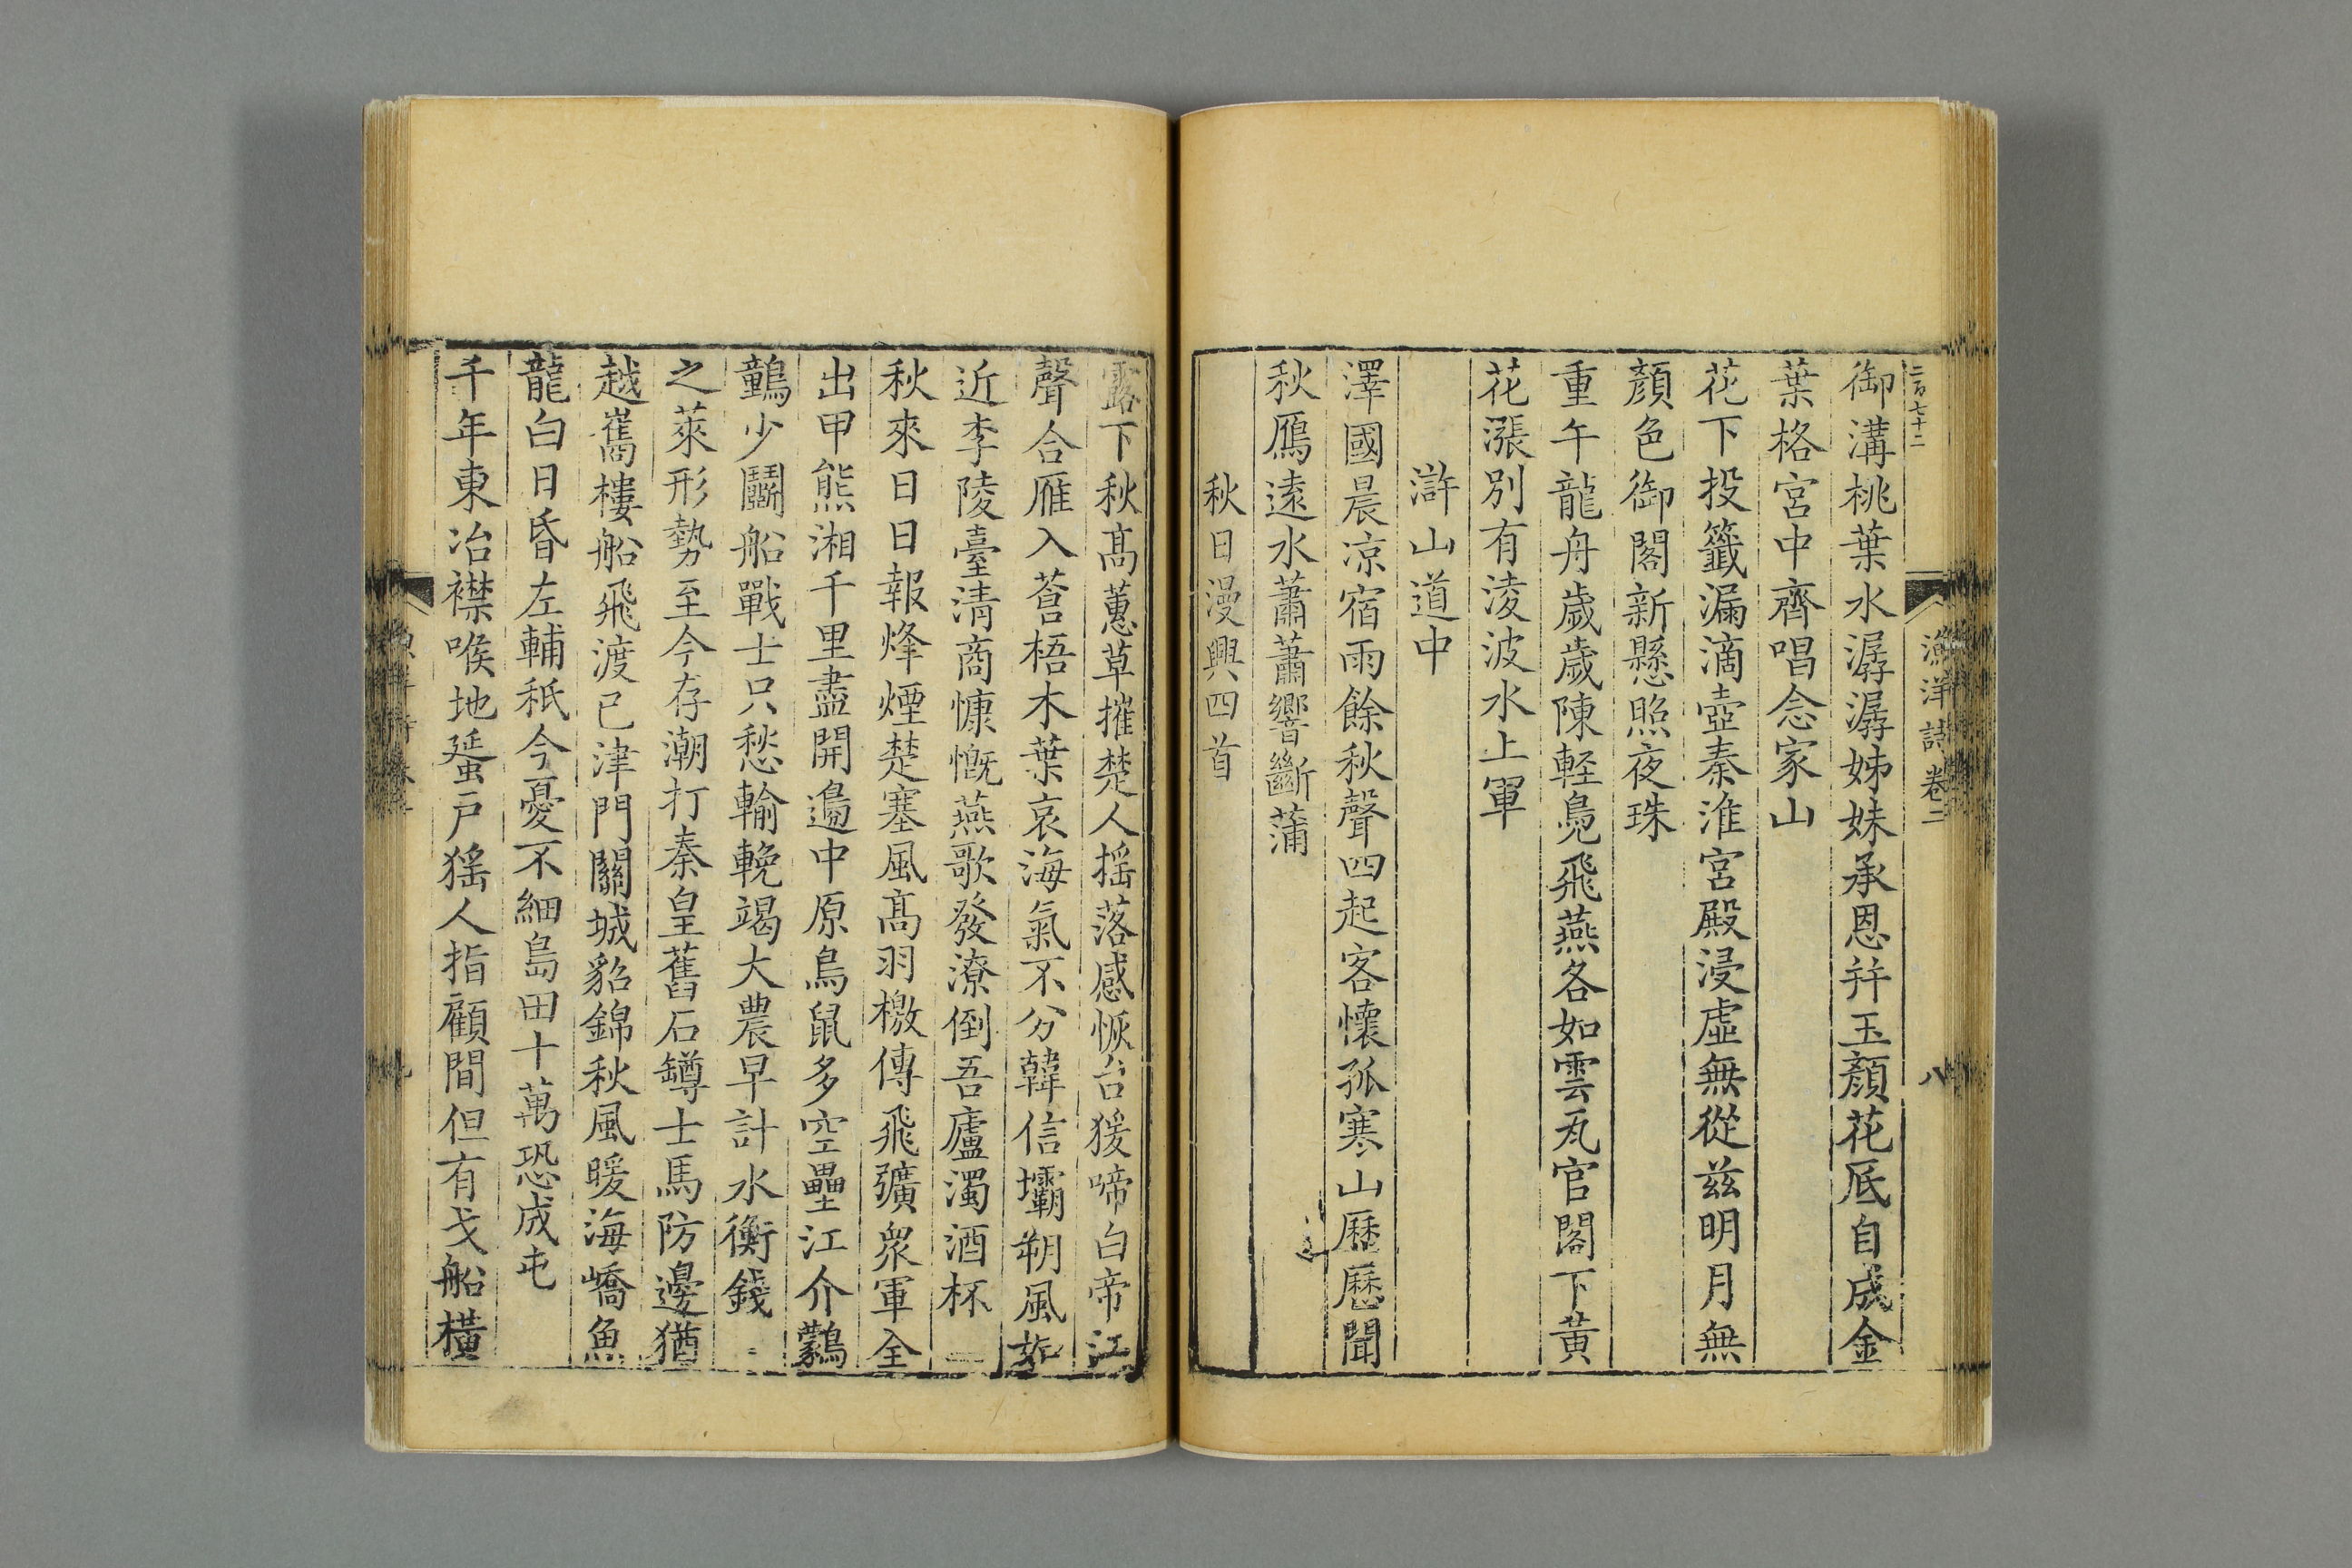 二百七十二
漁洋詩卷二
八
御溝桃葉水潺潺姊妹承恩并玉顏花底自成金
葉格宮中齊唱念家山
花下投籤漏滴壺秦淮宮殿浸虛無從茲明月無
顏色御閣新懸照夜珠
重午龍舟歲歲陳輕鳧飛燕各如雲瓦官閣下黃
花漲別有淩波水上軍
滸山道中
澤國晨凉宿雨餘秋聲四起客懷孤寒山歷歷聞
秋鴈遠水蕭蕭響斷蒲
秋日漫興四首
露下秋高蕙草摧楚人搖落感恢台猨啼白帝江
聲合雁入蒼梧木葉哀海氣不分韓信壩朔風如
近李陵臺清商慷慨燕歌發潦倒吾廬濁酒杯
秋來日日報烽煙楚塞風高羽檄傳飛彍衆軍全
出甲熊湘千里盡開邊中原鳥鼠多空壘江介鸏
鶈少鬭船戰士只愁輸輓竭大農早計水衡錢
之萊形勢至今存潮打秦皇舊石罇士馬防邊猶
越嶲樓船飛渡已津門關城貂錦秋風暖海嶠魚
龍白日昏左輔秖今憂不細島田十萬恐成屯
千年東冶襟喉地蜑戶猺人指顧間但有戈船橫
九